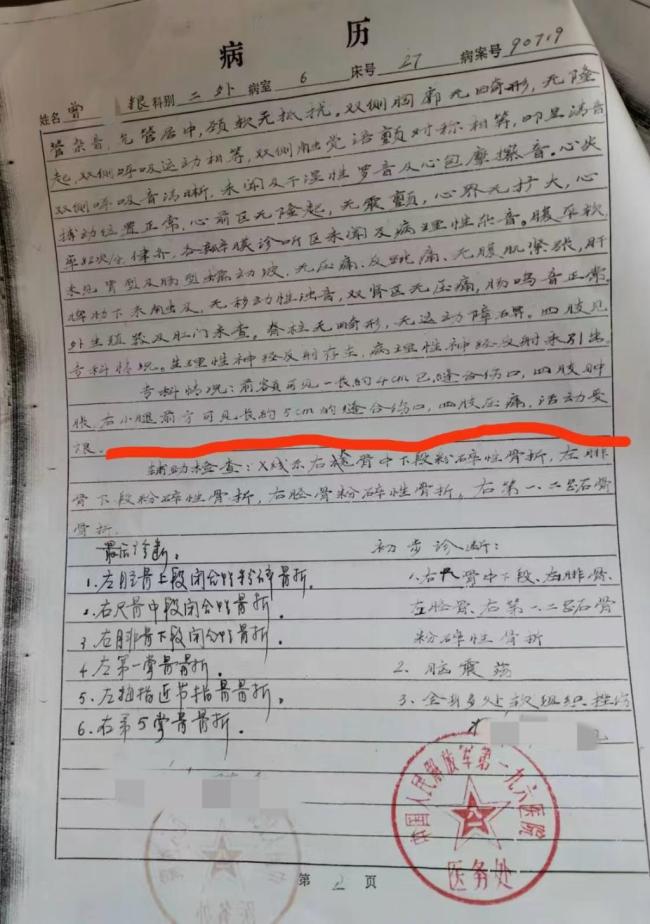 病 历
姓名 曾 银 科别 二外 病室 6 床号 27 病案号 90719
管杂音，气管居中，颈软无抵抗。双侧胸廓无畸形，无隆
起，双侧呼吸运动相等，双侧触觉语颤对称相等，叩呈清音
双侧呼吸音清晰，未闻及干湿性罗音及心包摩擦音。心尖
搏动位置正常，心前区无隆起，无震颤，心界无扩大，心
率82次/分，律齐，各瓣膜诊听区未闻及病理性杂音。腹平软，
未见胃型及肠型蠕动波，无压痛、反跳痛、无腹肌紧张，肝
脾肋下未触及，无移动性浊音，双肾区无压痛，肠鸣音正常。
外生殖器及肛门未查。脊柱无畸形，无运动障碍。四肢见
专科情况。生理性神经反射存在，病理性神经反射未引出。
专科情况：前额可见一长约4cm已缝合伤口，四肢肿
胀，右小腿前方可见长约5cm的缝合伤口，四肢压痛，活动受
限。
辅助检查：X线示右 骨中下段粉碎性骨折，左腓
骨下段粉碎性骨折，右胫骨粉碎性骨折。右第一、二 骨
骨折。
最后诊断。
初步诊断：
1.左胫骨上段闭合性粉碎骨折。
1.右尺骨中下段、左腓骨、
2.右尺骨中段闭合性骨折。
左胫骨、右第一、二 骨
3.左腓骨下段闭合性骨折。
粉碎性骨折
4.左第一掌骨骨折。
2.脑震荡
5.左拇指近节指骨骨折。
3.全身多处软组织挫伤
6.右第5掌骨骨折。
中国人民解放军第一九六医院
八一
医务处
第 2 页